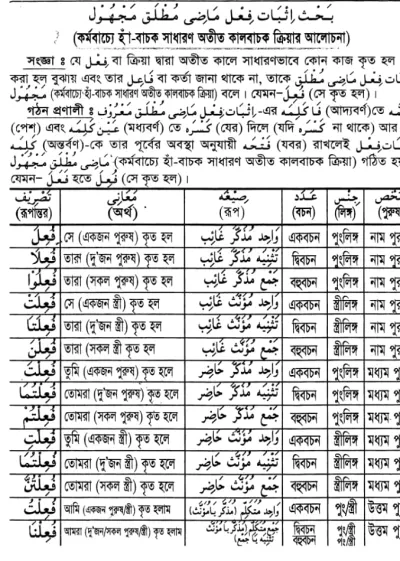 بحث اثبات فعل ماضی مطلق مجهول
(কর্মবাচ্যে হাঁ-বাচক সাধারণ অতীত কালবাচক ক্রিয়ার আলোচনা)
সংজ্ঞা ঃ যে فعل বা ক্রিয়া দ্বারা অতীত কালে সাধারণভাবে কোন কাজ কৃত হল
করা হল বুঝায় এবং তার فاعل বা কর্তা জানা থাকে না, তাকে اثبات فعل ماضی مطلق
مجهول (কর্মবাচ্যে হাঁ-বাচক সাধারণ অতীত কালবাচক ক্রিয়া) বলে। যেমন–فُعِلَ (সে কৃত হল)।
গঠন প্রণালী ঃ اثبات فعل ماضی مطلق معروف-এর فا کلمه (আদ্যবর্ণ)তে
(পেশ) এবং عین کلمه (মধ্যবর্ণ) তে کسره (যের) দিলে (যদি کسره না থাকে) আর
کلمه (অন্তবর্ণ)-কে তার পূর্বের অবস্থা অনুযায়ী فتحه (যবর) রাখলেই اثبات فعل
ماضی مطلق مجهول (কর্মবাচ্যে হাঁ-বাচক সাধারণ অতীত কালবাচক ক্রিয়া) গঠিত হয়
যেমন– فَعَلَ হতে فُعِلَ (সে কৃত হল)।
تصریف (রূপান্তর) معانی (অর্থ) صیغه (রূপ) عدد (বচন) جنس (লিঙ্গ)
فُعِلَ সে (একজন পুরুষ) কৃত হল واحد مذکر غائب একবচন পুংলিঙ্গ নাম পু
فُعِلَا তারা (দু'জন পুরুষ) কৃত হল تثنیه مذکر غائب দ্বিবচন পুংলিঙ্গ নাম পু
فُعِلُوْا তারা (সকল পুরুষ) কৃত হল جمع مذکر غائب বহুবচন পুংলিঙ্গ নাম পু
فُعِلَتْ সে (একজন স্ত্রী) কৃত হল واحد مؤنث غائب একবচন স্ত্রীলিঙ্গ নাম পু
فُعِلَتَا তারা (দু'জন স্ত্রী) কৃত হল تثنیه مؤنث غائب দ্বিবচন স্ত্রীলিঙ্গ নাম পু
فُعِلْنَ তারা (সকল স্ত্রী) কৃত হল جمع مؤنث غائب বহুবচন স্ত্রীলিঙ্গ নাম পু
فُعِلْتَ তুমি (একজন পুরুষ) কৃত হলে واحد مذکر حاضر একবচন পুংলিঙ্গ মধ্যম পু
فُعِلْتُمَا তোমরা (দু'জন পুরুষ) কৃত হলে تثنیه مذکر حاضر দ্বিবচন পুংলিঙ্গ মধ্যম পু
فُعِلْتُمْ তোমরা (সকল পুরুষ) কৃত হলে جمع مذکر حاضر বহুবচন পুংলিঙ্গ মধ্যম পু
فُعِلْتِ তুমি (একজন স্ত্রী) কৃত হলে واحد مؤنث حاضر একবচন স্ত্রীলিঙ্গ মধ্যম পু
فُعِلْتُمَا তোমরা (দু'জন স্ত্রী) কৃত হলে تثنیه مؤنث حاضر দ্বিবচন স্ত্রীলিঙ্গ মধ্যম পু
فُعِلْتُنَّ তোমরা (সকল স্ত্রী) কৃত হলে جمع مؤنث حاضر বহুবচন স্ত্রীলিঙ্গ মধ্যম পু
فُعِلْتُ আমি (একজন পুরুষ/স্ত্রী) কৃত হলাম واحد متکلم (مذکر یا مؤنث) একবচন পুং/স্ত্রী উত্তম পু
فُعِلْنَا আমরা (দু'জন/সকল পুরুষ/স্ত্রী) কৃত হলাম جمع متکلم (مذکر یا مؤنث تثنیه یا جمع) দ্বিবচন বহুবচন পুং/স্ত্রী পুং/স্ত্রী উত্তম পু